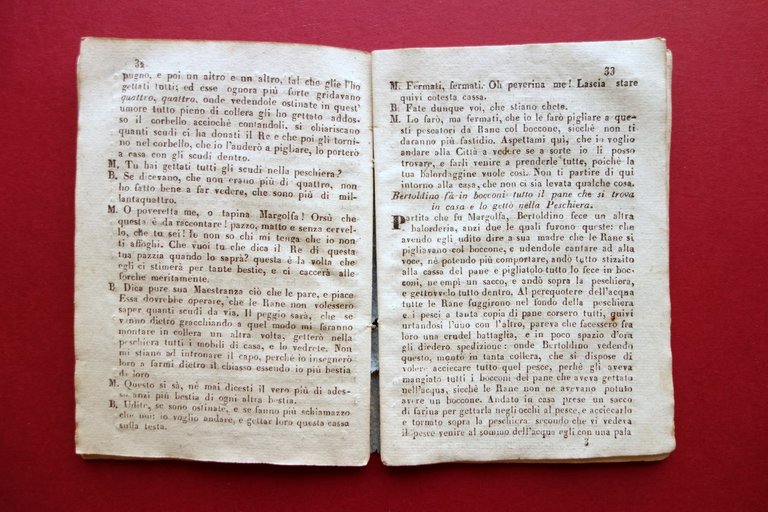 32
pugno, e poi un altro e un altro, tal che glie l'ho
gettati tutti; ed esse ognora più forte gridavano
quattro, quattro, onde vedendole ostinate in quest'
umore tutto pieno di collera gli ho gettato addos-
so il corbello acciocchè contandoli, si chiariscano
quanti scudi ci ha donati il Re e che poi gli torni-
no nel corbello, che io l'anderò a pigliare, lo porterò
a casa con gli scudi dentro.
M. Tu hai gettati tutti gli scudi nella peschiera?
B. Se dicevano, che non erano più di quattro, non
ho fatto bene a far vedere, che sono più di mil-
lantaquattro.
M. O poveretta me, o tapina Margolfa! Orsù che
questa è da raccontare! pazzo, matto e senza cervel-
lo, che tu sei! Io non so chi mi tenga che io non
ti affoghi. Che vuoi tu che dica il Re di questa
tua pazzia quando lo saprà? questa è la volta che
egli ci stimerà per tante bestie, e ci caccerà alle
forche meritamente.
B. Dica pure sua Maestranza ciò che le pare, e piace
Essa dovrebbe operare, che le Rane non volessero
saper quanti scudi da via. Il peggio sarà, che se
vanno dietro gracchiando a quel modo mi faranno
montare in collera un altra volta, getterò nella
peschiera tutti i mobili di casa, e lo vedrete. Non
mi stiano ad intronare il capo, perchè io insegnerò
loro a farmi dietro il chiasso essendo io più bestia
di loro
M. Questo si sà, nè mai dicesti il vero più di ades-
so anzi più bestia di ogni altra bestia.
B. Udite, se sono ostinate, e se fanno più schiamazzo
che mai: io voglio andare, e gettar loro questa cassa
sulla testa.
33
M. Fermati, fermati. Oh peverina me! Lascia stare
quivi cotesta cassa.
B. Fate dunque voi, che stiano chete.
M. Lo farò, ma fermati, che io le farò pigliare a que-
sti pescatori da Rane col boccone, sicchè non ti
daranno più fastidio. Aspettami quì, che io voglio
andare alla Città a vedere se a sorte io li posso
trovare, e farli venire a prenderle tutte, poichè la
tua balordaggine vuole così. Non ti partire di qui
intorno alla casa, che non ci sia levata qualche cosa.
Bertoldino fà in bocconi tutto il pane che si trova
in casa e lo gettò nella Peschiera.
Partita che fu Margolfa, Bertoldino fece un altra
balorderia, anzi due le quali furono queste: che
avendo egli udito dire a sua madre che le Rane si
pigliavano col boccone, e udendole cantare ad alta
voce, nè potendo più comportare, andò tutto stizzato
alla cassa del pane e pigliatolo tutto lo fece in boc-
coni, ne empì un sacco, e andò sopra la peschiera,
e gettovvelo tutto dentro. Al percuotere dell'acqua
tutte le Rane fuggirono nel fondo della peschiera
e i pesci a tanta copia di pane corsero tutti, quivi
urtandosi l'uno con l'altro, pareva che facessero fra
loro una crudel battaglia, e in poco spazio d'ora
gli diedero spedizione; onde Bertoldino vedendo
questo, montò in tanta collera, che si dispose di
volere acciecare tutto quel pesce, perhè gli aveva
mangiato tutti i bocconi del pane che aveva gettato
nell'acqua, sicchè le Rane non ne avevano potuto
avere un boccone. Andato in casa prese un sacco
di farina per gettarla negli occhi al pesce, e acciecarlo
e tornato sopra la peschiera secondo che vi vedeva
il pesce venire al sommo dell'acqua egli con una pala
3